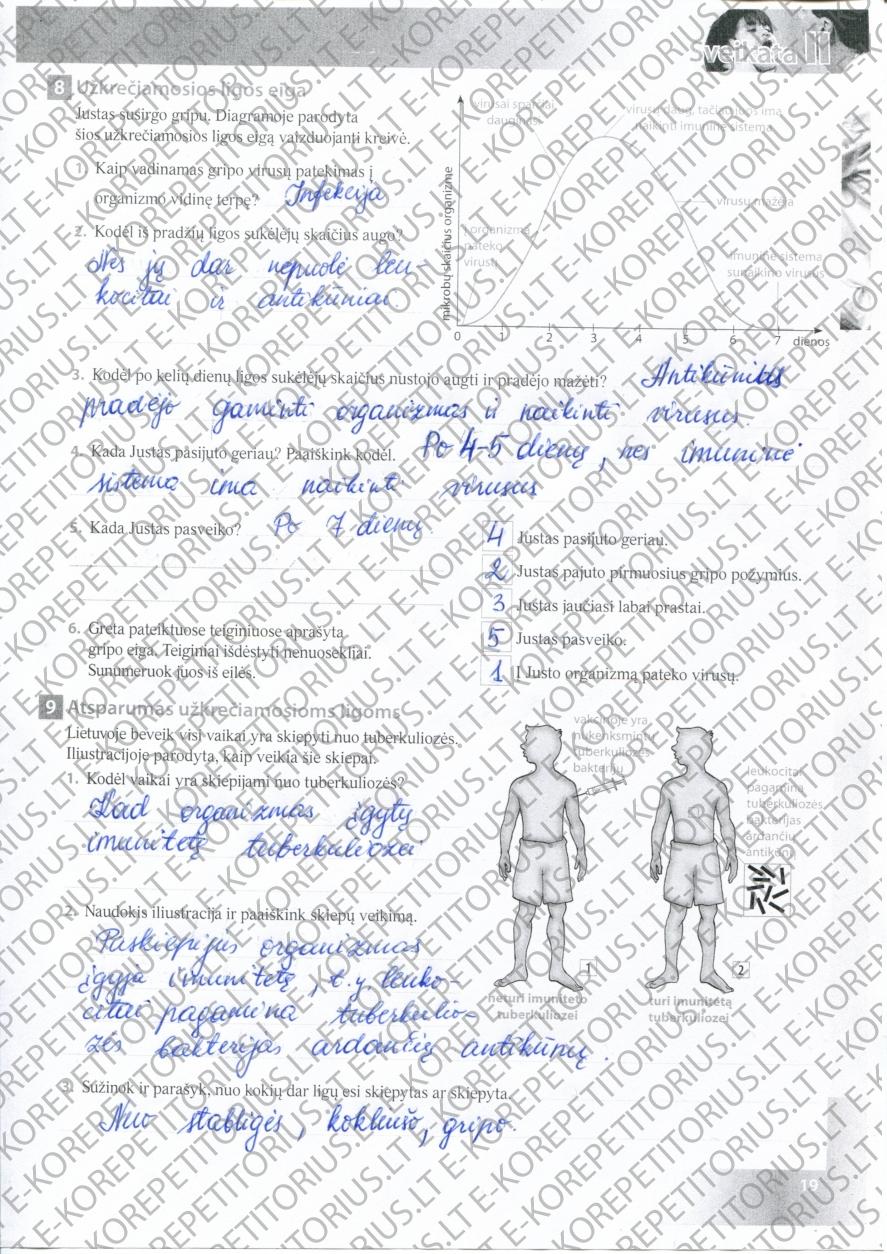 sveikata 11
8 Užkrečiamosios ligos eiga
Justas susirgo gripu. Diagramoje parodyta
šios užkrečiamosios ligos eigą vaizduojanti kreivė.
1. Kaip vadinamas gripo virusų patekimas į
organizmo vidinę terpę? Infekcija
2. Kodėl iš pradžių ligos sukėlėjų skaičius augo?
Nes jų dar nepuolė leu-
kocitai ir antikūniai.
mikrobų skaičius organizme
virusai sparčiai
dauginasi
virusų daug, tačiau juos ima
naikinti imuninė sistema
virusų mažėja
į organizmą
pateko
virusų
imuninė sistema
sunaikino virusus
0 1 2 3 4 5 6 7 dienos
3. Kodėl po kelių dienų ligos sukėlėjų skaičius nustojo augti ir pradėjo mažėti? Antikūnius
pradėjo gaminti organizmas ir naikinti virusus.
4. Kada Justas pasijuto geriau? Paaiškink kodėl. Po 4-5 dienų, nes imuninė
sistema ima naikinti virusus
5. Kada Justas pasveiko? Po 7 dienų.
6. Greta pateiktuose teiginiuose aprašyta
gripo eiga. Teiginiai išdėstyti nenuosekliai.
Sunumeruok juos iš eilės.
4 Justas pasijuto geriau.
2 Justas pajuto pirmuosius gripo požymius.
3 Justas jaučiasi labai prastai.
5 Justas pasveiko.
1 Į Justo organizmą pateko virusų.
9 Atsparumas užkrečiamosioms ligoms
Lietuvoje beveik visi vaikai yra skiepyti nuo tuberkuliozės.
Iliustracijoje parodyta, kaip veikia šie skiepai.
1. Kodėl vaikai yra skiepijami nuo tuberkuliozės?
Kad organizmas įgytų
imunitetą tuberkuliozei
2. Naudokis iliustracija ir paaiškink skiepų veikimą.
Paskiepijus organizmas
įgyja imunitetą, t.y. leuko-
citai pagamina tuberkulio-
zės bakterijas ardančių antikūnų.
vakcinoje yra
nukenksmintų
tuberkuliozės
bakterijų
leukocitai
pagamina
tuberkuliozės
bakterijas
ardančių
antikūnų
1
2
neturi imuniteto
tuberkuliozei
turi imunitetą
tuberkuliozei
3. Sužinok ir parašyk, nuo kokių dar ligų esi skiepytas ar skiepyta.
Nuo stabligės, kokliušo, gripo.
19
E-KOREPETITORIUS.LT